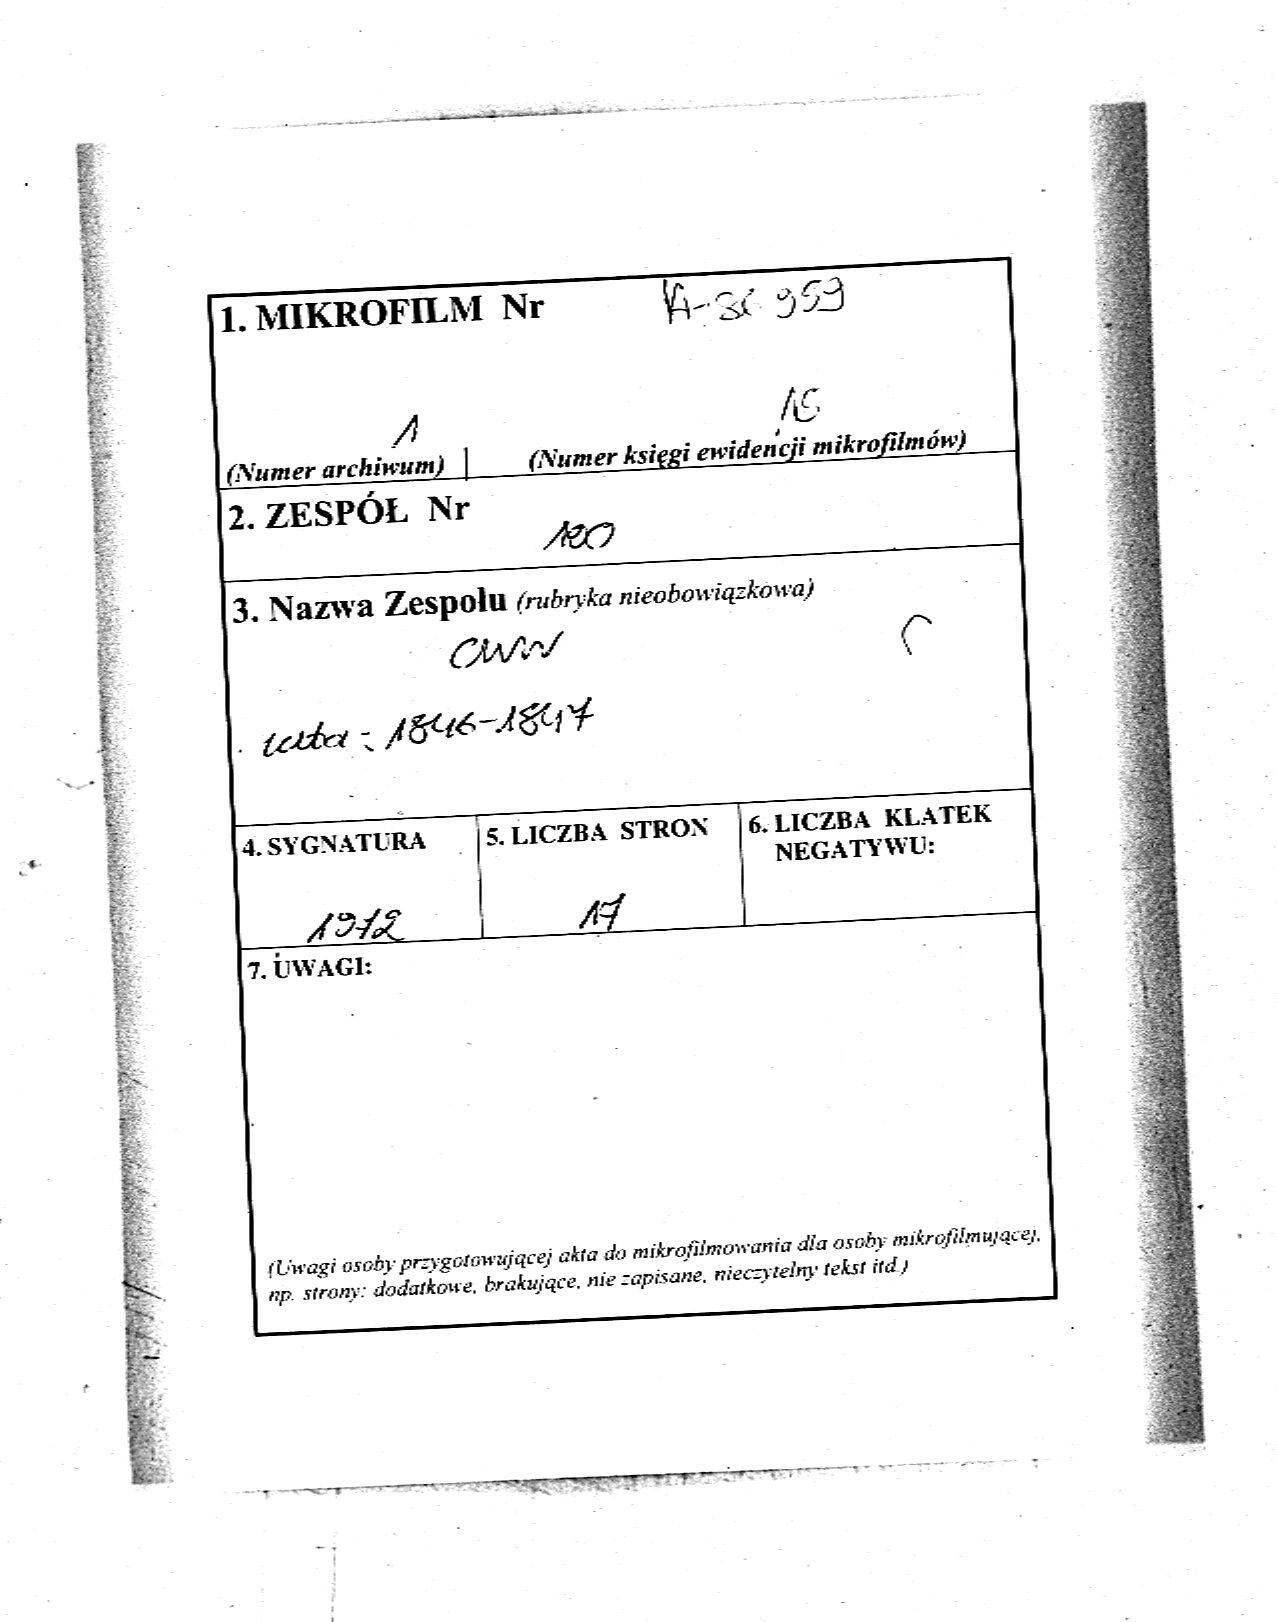 1. MIKROFILM Nr
959
1
(Numer archiwum) (Numer księgi ewidencji mikrofilmów)
2. ZESPÓŁ Nr
190
3. Nazwa Zespołu (rubryka nieobowiązkowa)
CWW
1846-1847
4. SYGNATURA
5. LICZBA STRON
6. LICZBA KLATEK
NEGATYWU:
1972
17
7. UWAGI:
(Uwagi osoby przygotowującej akta do mikrofilmowania dla osoby mikrofilmującej,
np. strony: dodatkowe, brakujące, nie zapisane, nieczytelny tekst itd.)